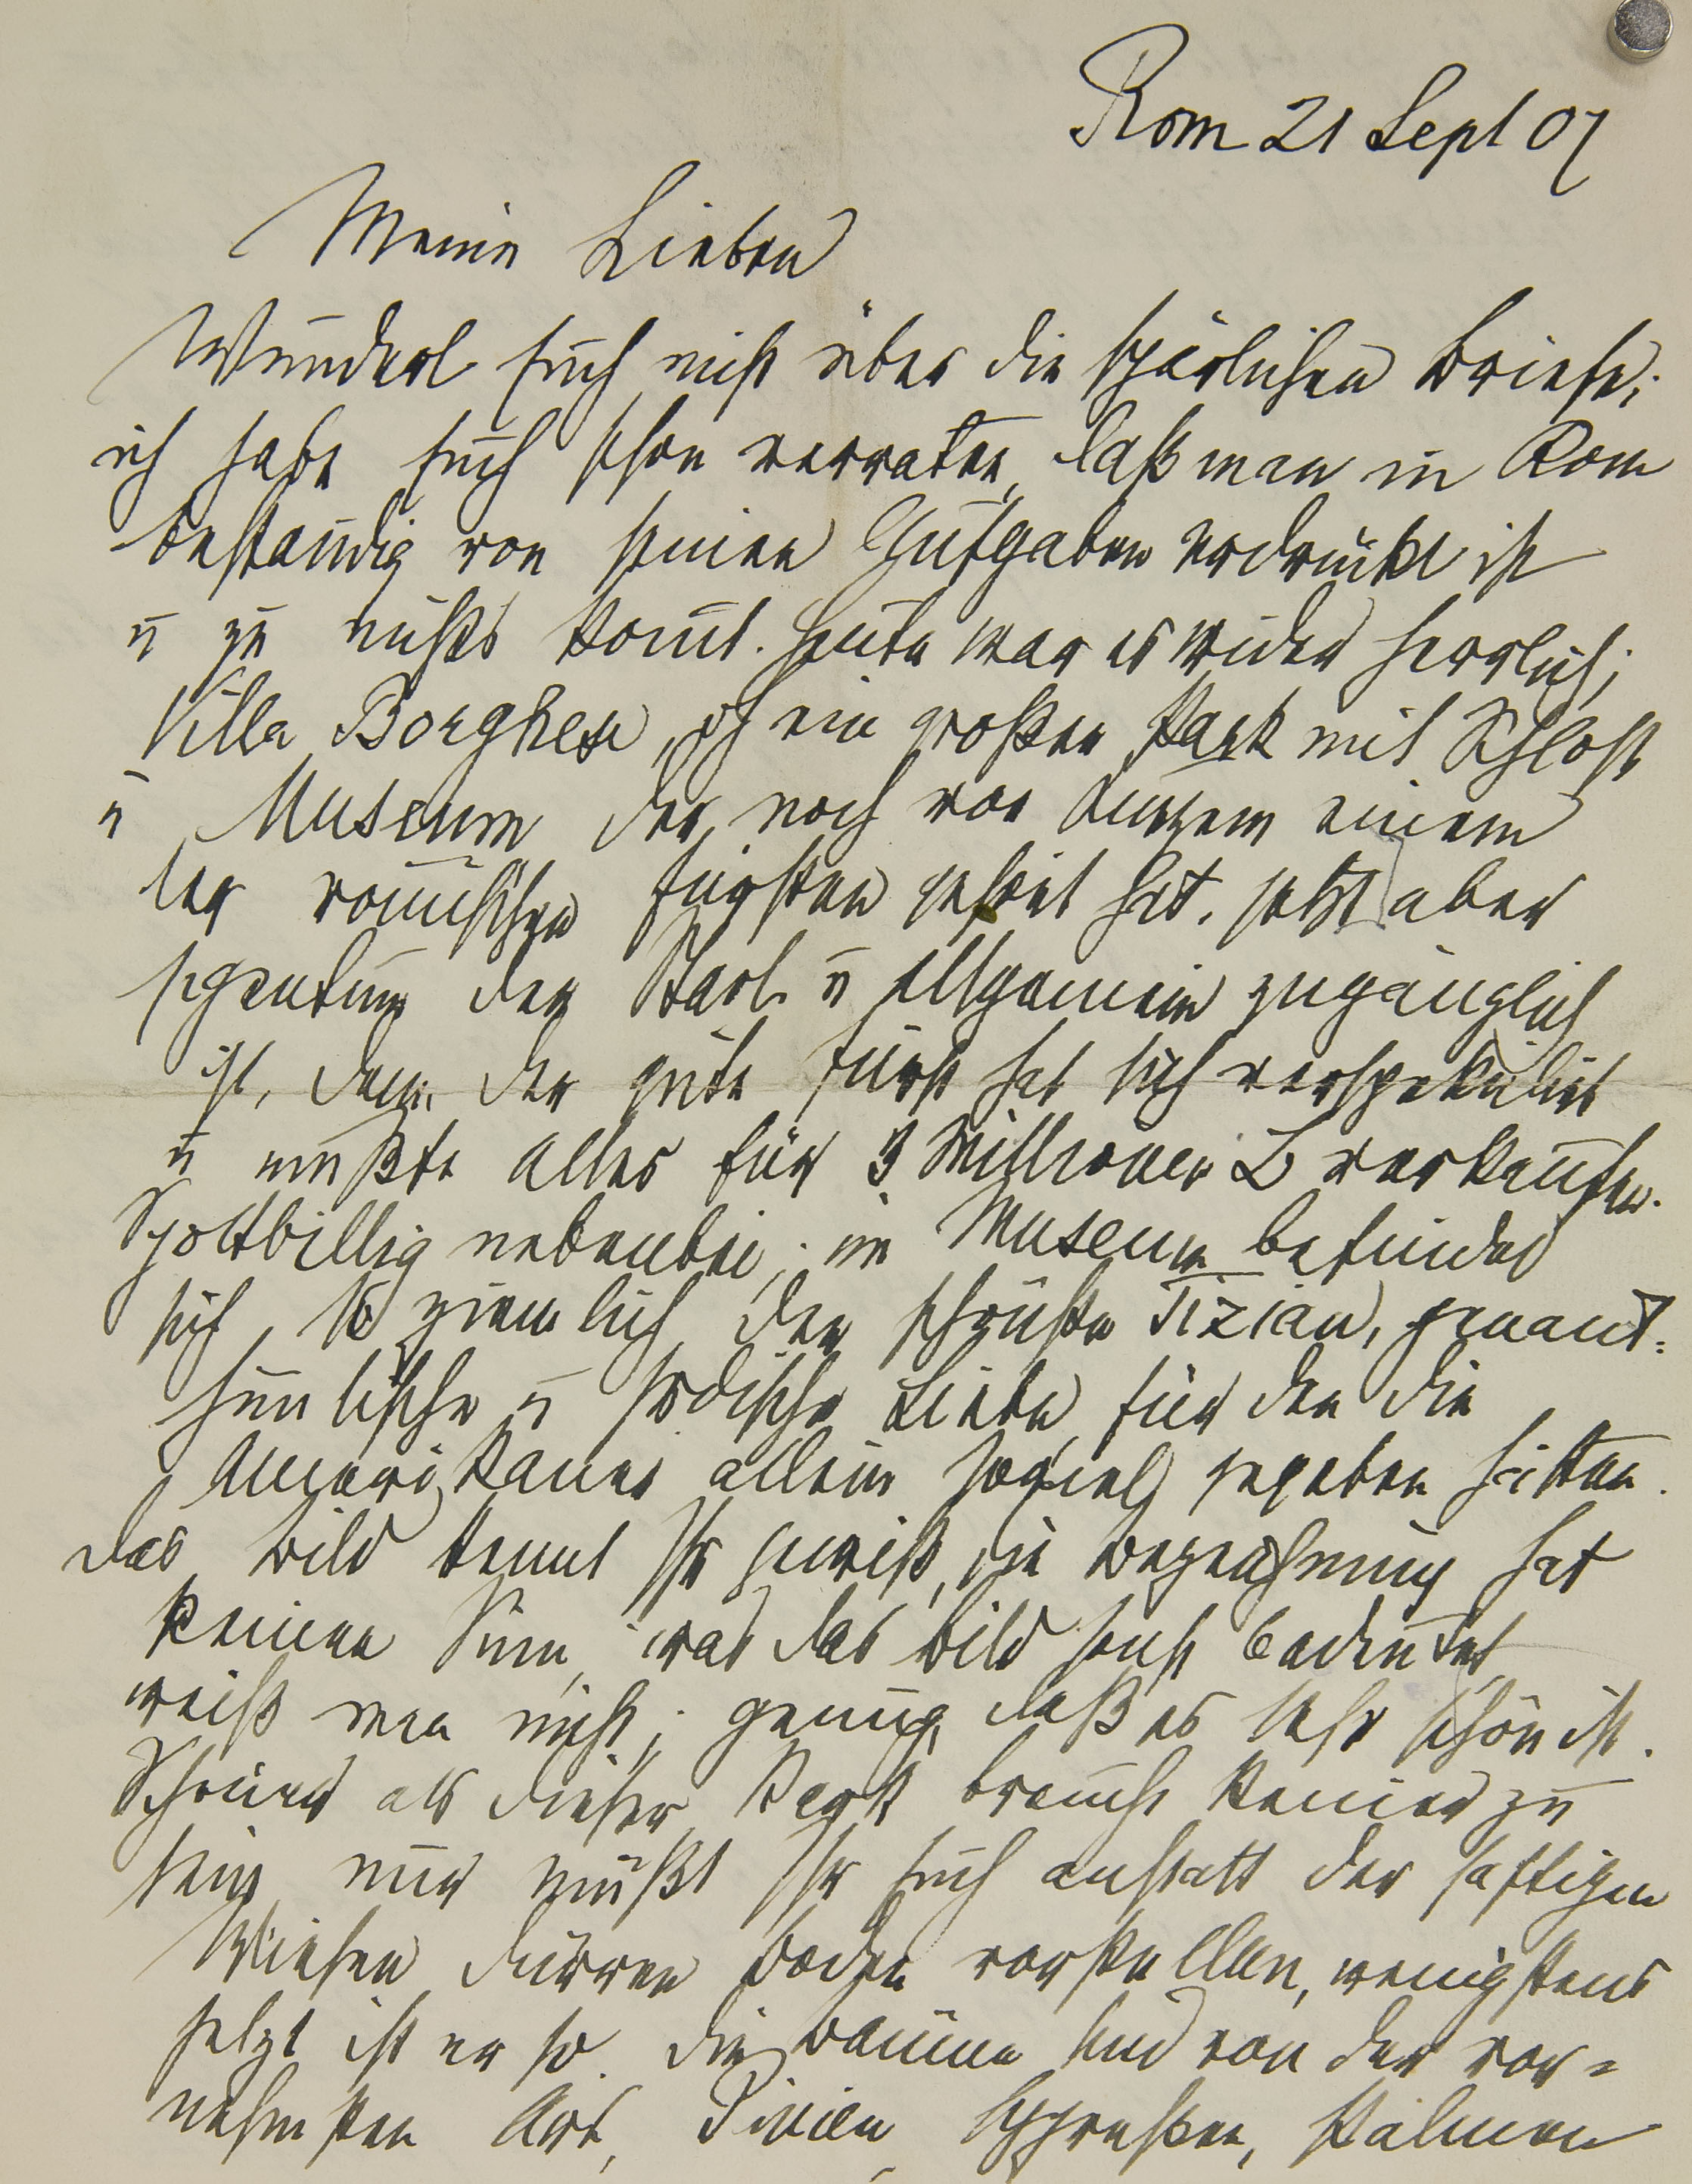 Rom 21 Sept 07
Meine Lieben
Wundert Euch nicht über die spärlichen Briefe;
ich habe Euch schon verraten, daß man in Rom
beständig von seinen Aufgaben erdrückt ist
u zu nichts kom̄t. Heute war es wieder herrlich;
Villa Borghese, ist ein großer Park mit Schloß
u Museum der noch vor kurzem einem
der römischen Fürsten gehört hat. jetzt aber
Eigentum der Stadt u allgemein zugänglich
ist, denn der gute Fürst hat sich verspekuliert
u mußte alles für 3 Millionen L verkaufen.
Spottbillig nebenbei; im Museum befindet
sich so ziemlich der schönste Tizian, genannt:
himlische u irdische Liebe, für den die
Amerikaner allein soviel gegeben hätten.
Das Bild kennt Ihr gewiß, die Bezeichnung hat
keinen Sinn, was das Bild sonst bedeutet
weiß man nicht; genug, daß es sehr schön ist.
Schöner als dieser Park braucht keiner zu
sein, nur müßt Ihr Euch anstatt der saftigen
Wiesen dürren Boden vorstellen, wenigstens
jetzt ist er so. Die Bäume sind von der vor-
nehmsten Art, Pinien, Cypressen, Palmen